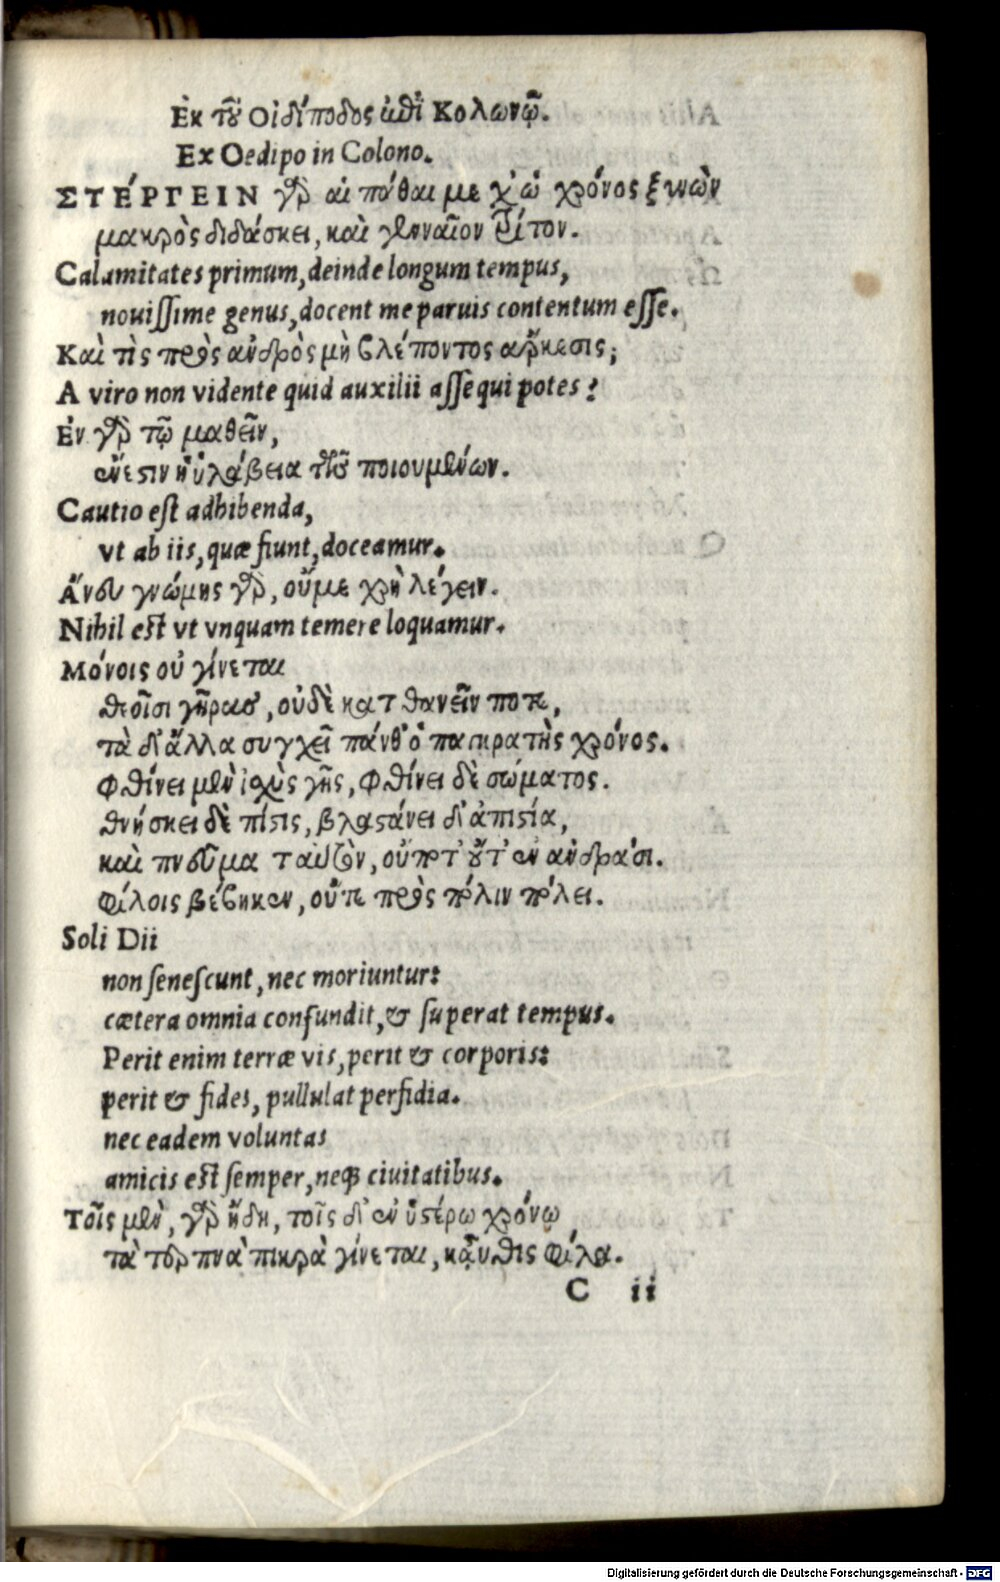 Ἐκ τοῦ Οἰδίποδος ἐπὶ Κολωνῷ.
Ex Oedipo in Colono.
ΣΤΕΡΓΕΙΝ γὰρ αἱ πάθαι με χ' ὡ χρόνος ξυνὼν
μακρὸς διδάσκει, καὶ γενναῖον τρίτον.
Calamitates primum, deinde longum tempus,
nouissime genus, docent me paruis contentum esse.
Καὶ τὶς πρὸς ἀνδρὸς μὴ βλέποντος ἄρκεσις;
A viro non vidente quid auxilii assequi potes?
Ἐν γὰρ τῷ μαθεῖν,
ἔνεστιν ἡυλάβεια τῶν ποιουμένων.
Cautio est adhibenda,
vt ab iis, quæ fiunt, doceamur.
Ἄνευ γνώμης γὰρ, οὔμε χρὴ λέγειν.
Nihil est vt vnquam temere loquamur.
Μόνοις οὐ γίνεται
θεοῖσι γῆρας, οὐδὲ κατθανεῖν ποτε,
τὰ δ' ἄλλα συγχεῖ πάνθ' ὁ παγκρατὴς χρόνος.
Φθίνει μὲν ἰσχὺς γῆς, φθίνει δὲ σώματος.
θνήσκει δὲ πίστις, βλαστάνει δ' ἀπιστία,
καὶ πνεῦμα ταυτὸν, οὔποτ' οὔτ' ἐν ἀνδράσι.
φίλοις βέβηκεν, οὔτε πρὸς πόλιν πόλει.
Soli Dii
non senescunt, nec moriuntur:
cætera omnia confundit, & superat tempus.
Perit enim terræ vis, perit & corporis:
perit & fides, pullulat perfidia.
nec eadem voluntas
amicis est semper, neq; ciuitatibus.
Τοῖς μὲν, γὰρ ἤδη, τοῖς δ' ἐν ὑστέρω χρόνω
τὰ τερπνὰ πικρὰ γίνεται, κᾆυθις φίλα.
C ii
Digitalisierung gefördert durch die Deutsche Forschungsgemeinschaft - DFG